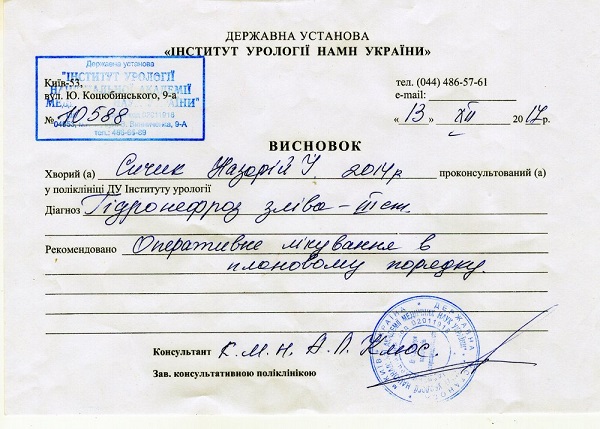 ДЕРЖАВНА УСТАНОВА
«ІНСТИТУТ УРОЛОГІЇ НАМН УКРАЇНИ»
Державна установа
"ІНСТИТУТ УРОЛОГІЇ
НАЦІОНАЛЬНОЇ АКАДЕМІЇ
Київ-53,
вул. Ю. Коцюбинського, 9-а
№ 10588
тел. (044) 486-57-61
e-mail:
« 13 » XII 2017р.
ВИСНОВОК
Хворий (а) Сичик Назарій У. 2014р проконсультований (а)
у поліклініці ДУ Інституту урології
Діагноз Гідронефроз зліва - III ст.
Рекомендовано Оперативне лікування в
плановому порядку.
Консультант К.М.Н. А.Л. Клюс.
Зав. консультативною поліклінікою